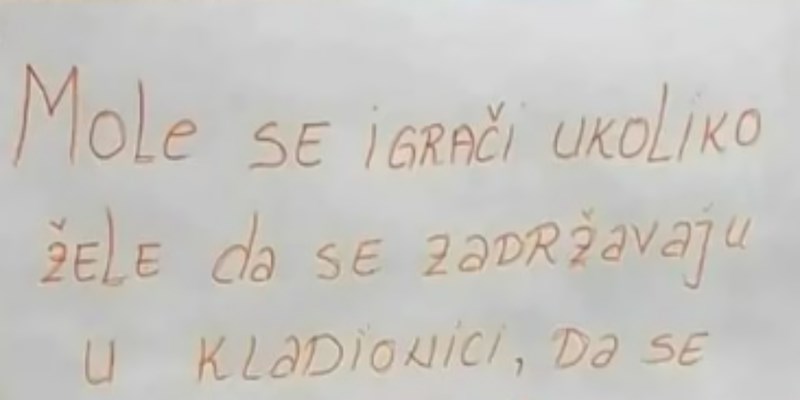 Mole SE iGRAČi UKOLiKO
žELE da SE zaDRžavaju
u KLaDioNici, Da SE